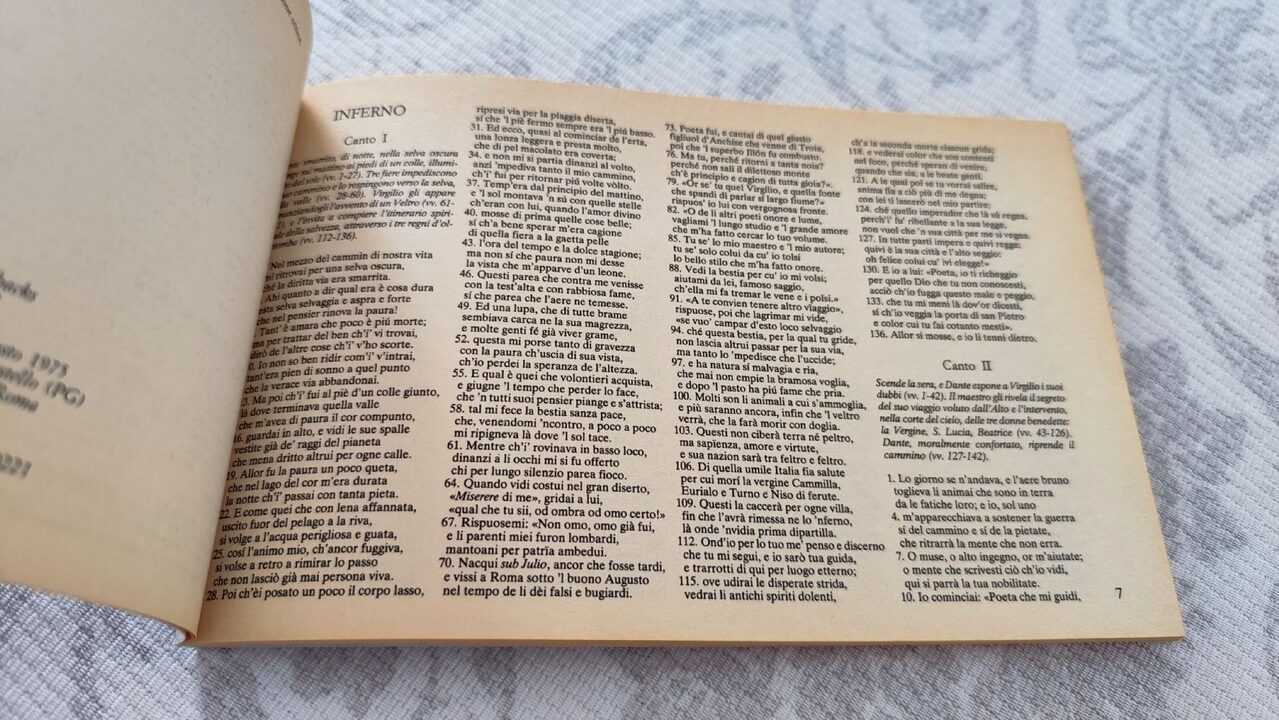 backs
1975
(PG)
Roma
0221
INFERNO
Canto I
smarrito, di notte, nella selva oscura
sul mattino ai piedi di un colle, illumi-
dal sole (vv. 1-27). Tre fiere impediscono
cammino e lo respingono verso la selva,
valle (vv. 28-60). Virgilio gli appare
nunziandogli l'avvento di un Veltro (vv. 61-
e l'invita a compiere l'itinerario spiri-
della salvezza, attraverso i tre regni d'ol-
tomba (vv. 112-136).
Nel mezzo del cammin di nostra vita
mi ritrovai per una selva oscura,
ché la diritta via era smarrita.
Ahi quanto a dir qual era è cosa dura
esta selva selvaggia e aspra e forte
che nel pensier rinova la paura!
Tant' è amara che poco è piú morte;
ma per trattar del ben ch'i' vi trovai,
dirò de l'altre cose ch'i' v'ho scorte.
Io non so ben ridir com'i' v'intrai,
tant'era pien di sonno a quel punto
che la verace via abbandonai.
Ma poi ch'i' fui al piè d'un colle giunto,
là dove terminava quella valle
che m'avea di paura il cor compunto,
16. guardai in alto, e vidi le sue spalle
vestite già de' raggi del pianeta
che mena dritto altrui per ogne calle.
19. Allor fu la paura un poco queta,
che nel lago del cor m'era durata
la notte ch'i' passai con tanta pieta.
22. E come quei che con lena affannata,
uscito fuor del pelago a la riva,
si volge a l'acqua perigliosa e guata,
25. cosí l'animo mio, ch'ancor fuggiva,
si volse a retro a rimirar lo passo
che non lasciò già mai persona viva.
28. Poi ch'èi posato un poco il corpo lasso,
ripresi via per la piaggia diserta,
sí che 'l piè fermo sempre era 'l piú basso.
31. Ed ecco, quasi al cominciar de l'erta,
una lonza leggera e presta molto,
che di pel macolato era coverta;
34. e non mi si partia dinanzi al volto,
anzi 'mpediva tanto il mio cammino,
ch'i' fui per ritornar piú volte vòlto.
37. Temp'era dal principio del mattino,
e 'l sol montava 'n sú con quelle stelle
ch'eran con lui, quando l'amor divino
40. mosse di prima quelle cose belle;
sí ch'a bene sperar m'era cagione
di quella fiera a la gaetta pelle
43. l'ora del tempo e la dolce stagione;
ma non sí che paura non mi desse
la vista che m'apparve d'un leone.
46. Questi parea che contra me venisse
con la test'alta e con rabbiosa fame,
sí che parea che l'aere ne temesse.
49. Ed una lupa, che di tutte brame
sembiava carca ne la sua magrezza,
e molte genti fé già viver grame,
52. questa mi porse tanto di gravezza
con la paura ch'uscia di sua vista,
ch'io perdei la speranza de l'altezza.
55. E qual è quei che volontieri acquista,
e giugne 'l tempo che perder lo face,
che 'n tutti suoi pensier piange e s'attrista;
58. tal mi fece la bestia sanza pace,
che, venendomi 'ncontro, a poco a poco
mi ripigneva là dove 'l sol tace.
61. Mentre ch'i' rovinava in basso loco,
dinanzi a li occhi mi si fu offerto
chi per lungo silenzio parea fioco.
64. Quando vidi costui nel gran diserto,
«Miserere di me», gridai a lui,
«qual che tu sii, od ombra od omo certo!»
67. Rispuosemi: «Non omo, omo già fui,
e li parenti miei furon lombardi,
mantoani per patrïa ambedui.
70. Nacqui sub Julio, ancor che fosse tardi,
e vissi a Roma sotto 'l buono Augusto
nel tempo de li dèi falsi e bugiardi.
73. Poeta fui, e cantai di quel giusto
figliuol d'Anchise che venne di Troia,
poi che 'l superbo Ilión fu combusto.
76. Ma tu, perché ritorni a tanta noia?
perché non sali il dilettoso monte
ch'è principio e cagion di tutta gioia?».
79. «Or se' tu quel Virgilio, e quella fonte
che spandi di parlar sí largo fiume?»
rispuos'io lui con vergognosa fronte.
82. «O de li altri poeti onore e lume,
vagliami 'l lungo studio e 'l grande amore
che m'ha fatto cercar lo tuo volume.
85. Tu se' lo mio maestro e 'l mio autore;
tu se' solo colui da cu' io tolsi
lo bello stilo che m'ha fatto onore.
88. Vedi la bestia per cu' io mi volsi;
aiutami da lei, famoso saggio,
ch'ella mi fa tremar le vene e i polsi.»
91. «A te convien tenere altro viaggio»,
rispuose, poi che lagrimar mi vide,
«se vuo' campar d'esto loco selvaggio
94. ché questa bestia, per la qual tu gride,
non lascia altrui passar per la sua via,
ma tanto lo 'mpedisce che l'uccide;
97. e ha natura sí malvagia e ria,
che mai non empie la bramosa voglia,
e dopo 'l pasto ha piú fame che pria.
100. Molti son li animali a cui s'ammoglia,
e piú saranno ancora, infin che 'l veltro
verrà, che la farà morir con doglia.
103. Questi non ciberà terra né peltro,
ma sapienza, amore e virtute,
e sua nazion sarà tra feltro e feltro.
106. Di quella umile Italia fia salute
per cui morí la vergine Cammilla,
Eurialo e Turno e Niso di ferute.
109. Questi la caccerà per ogne villa,
fin che l'avrà rimessa ne lo 'nferno,
là onde 'nvidia prima dipartilla.
112. Ond'io per lo tuo me' penso e discerno
che tu mi segui, e io sarò tua guida,
e trarrotti di qui per luogo etterno;
115. ove udirai le disperate strida,
vedrai li antichi spiriti dolenti,
ch'a la seconda morte ciascun grida;
118. e vederai color che son contenti
nel foco, perché speran di venire,
quando che sia, a le beate genti.
121. A le quai poi se tu vorrai salire,
anima fia a ciò piú di me degna;
con lei ti lascerò nel mio partire;
124. ché quello imperador che là sú regna,
perch'i' fu' ribellante a la sua legge,
non vuol che 'n sua città per me si vegna.
127. In tutte parti impera e quivi regge;
quivi è la sua città e l'alto seggio:
oh felice colui cu' ivi elegge!»
130. E io a lui: «Poeta, io ti richeggio
per quello Dio che tu non conoscesti,
acciò ch'io fugga questo male e peggio,
133. che tu mi meni là dov'or dicesti,
sí ch'io veggia la porta di san Pietro
e color cui tu fai cotanto mesti».
136. Allor si mosse, e io li tenni dietro.
Canto II
Scende la sera, e Dante espone a Virgilio i suoi
dubbi (vv. 1-42). Il maestro gli rivela il segreto
del suo viaggio voluto dall'Alto e l'intervento,
nella corte del cielo, delle tre donne benedette:
la Vergine, S. Lucia, Beatrice (vv. 43-126).
Dante, moralmente confortato, riprende il
cammino (vv. 127-142).
1. Lo giorno se n'andava, e l'aere bruno
toglieva li animai che sono in terra
da le fatiche loro; e io, sol uno
4. m'apparecchiava a sostener la guerra
sí del cammino e sí de la pietate,
che ritrarrà la mente che non erra.
7. O muse, o alto ingegno, or m'aiutate;
o mente che scrivesti ciò ch'io vidi,
qui si parrà la tua nobilitate.
10. Io cominciai: «Poeta che mi guidi,
7